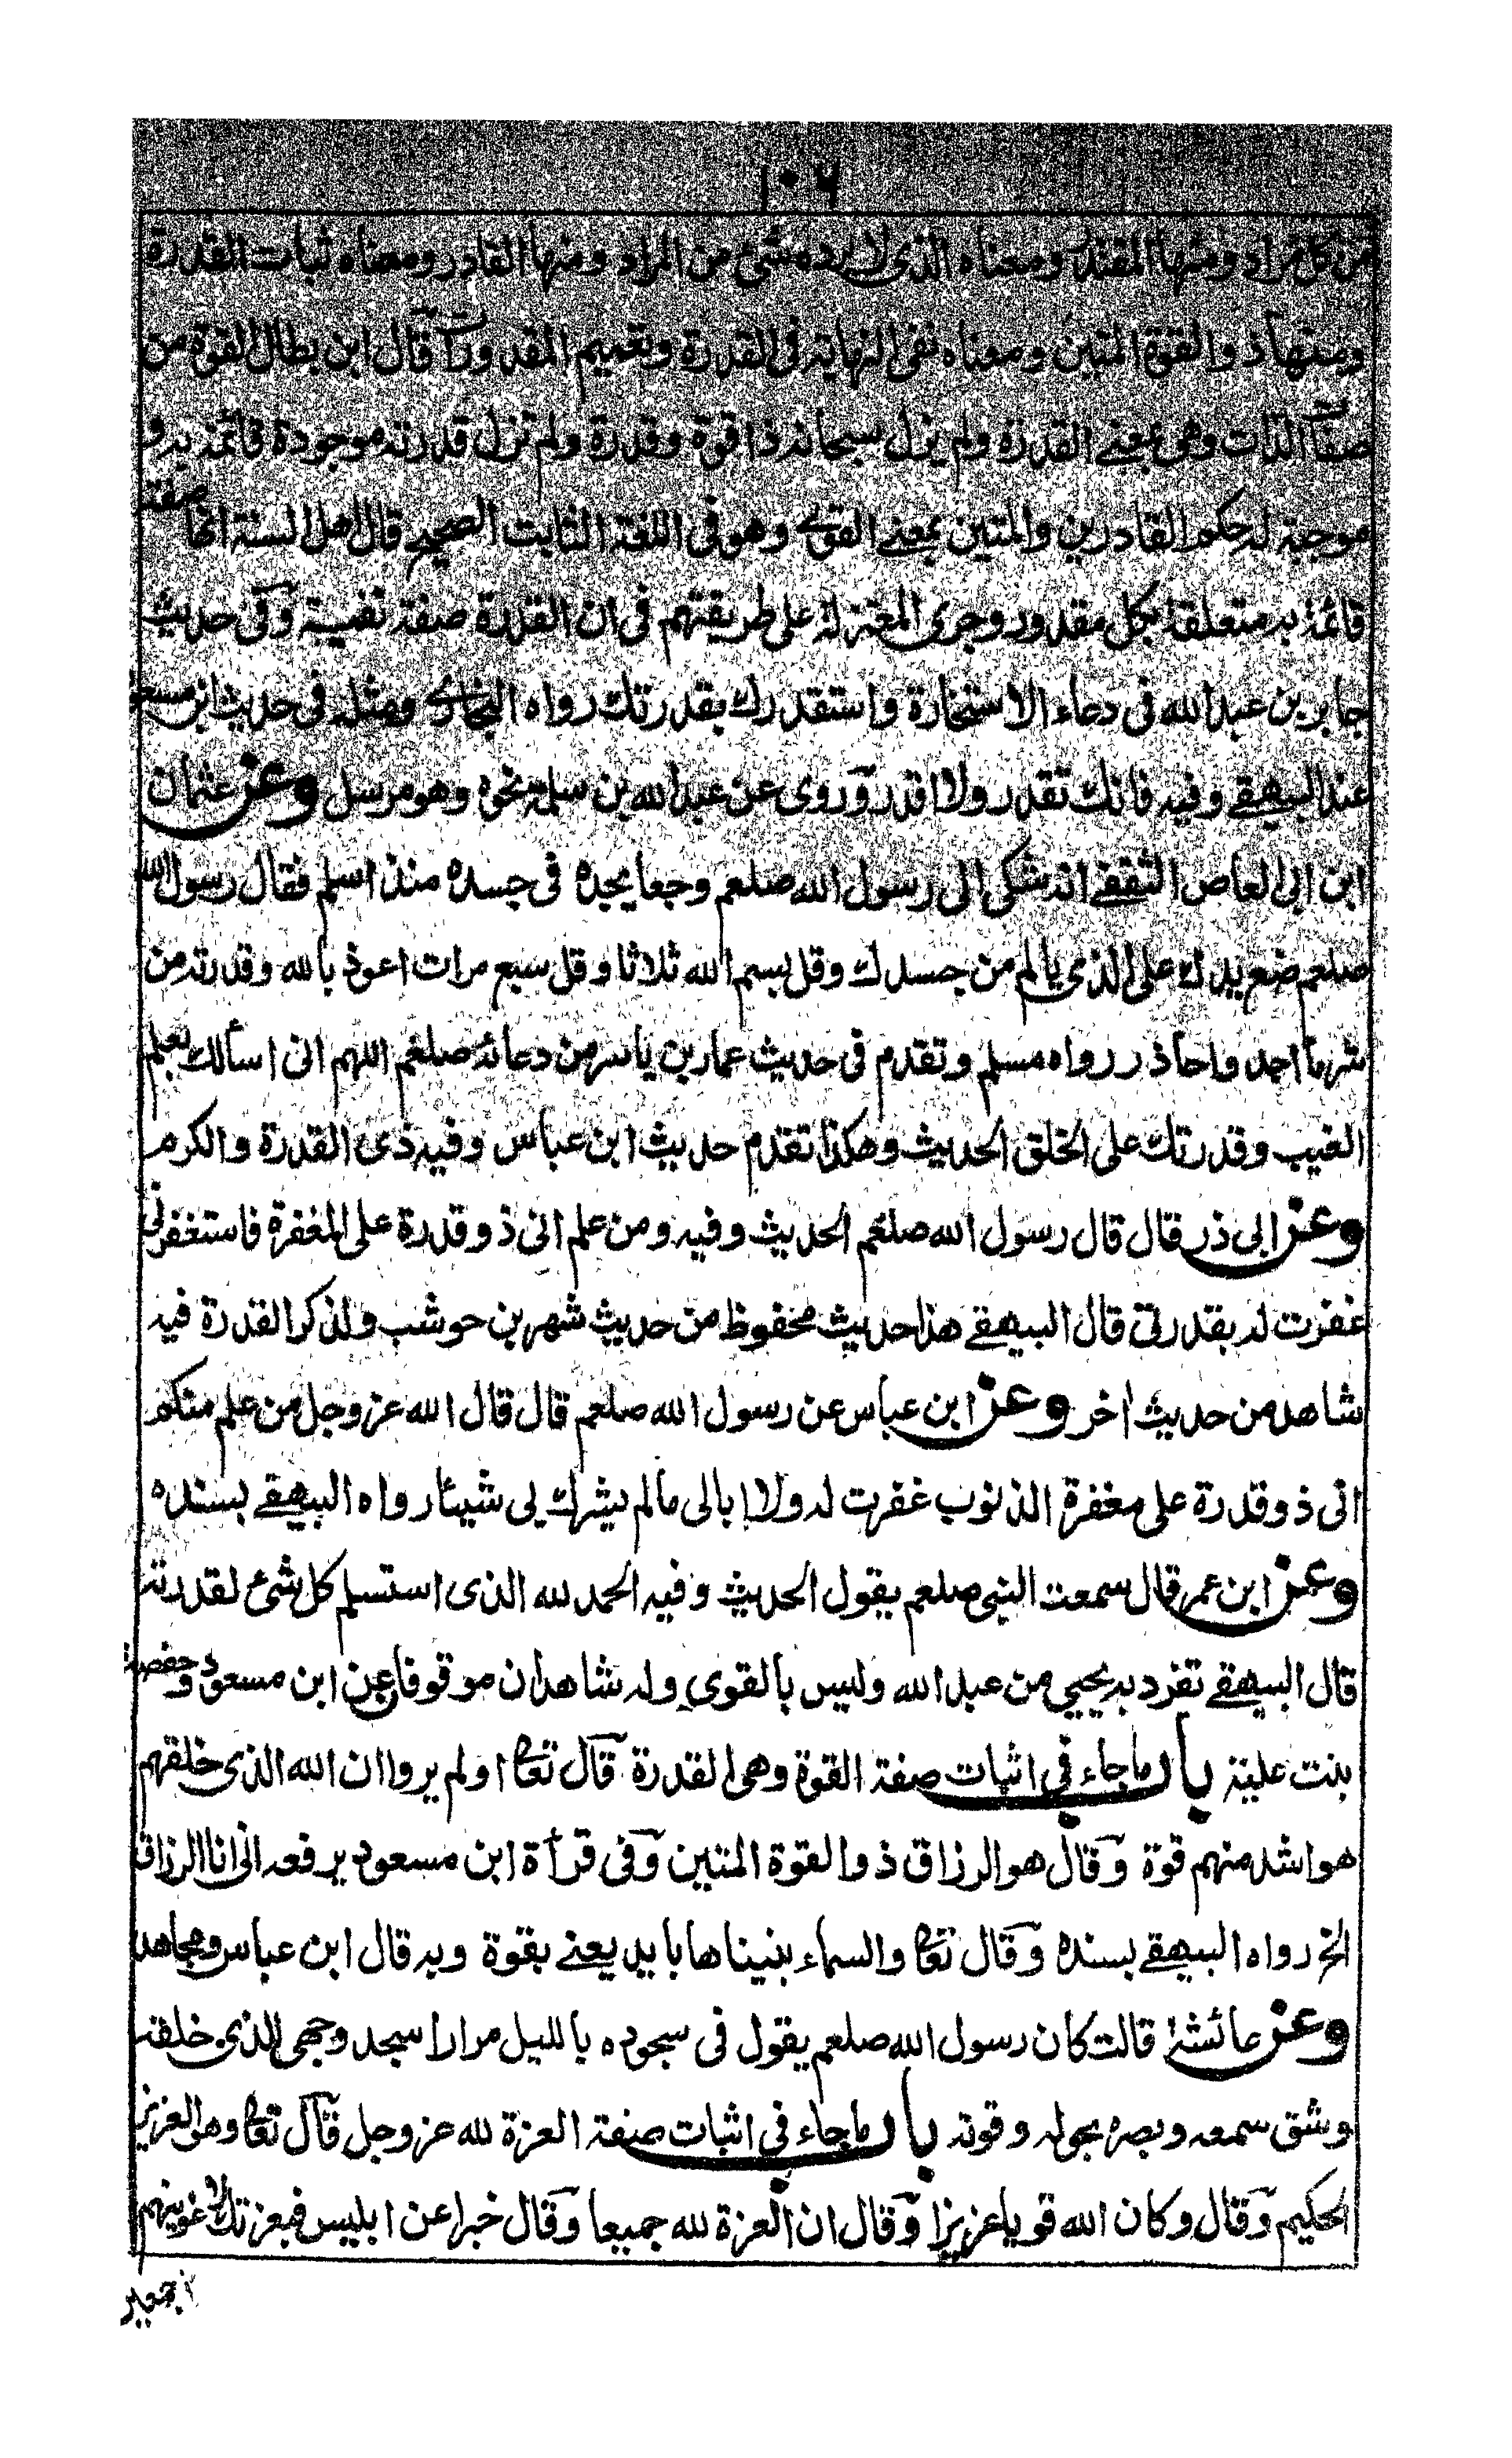 ١٠٦
من كل مراد ومنها المقتدر ومعناه الذي لا يرده شئ من المراد ومنها القادر ومعناه ثبات القدرة
ومنها ذو القوة المتين ومعناه نفي النهاية في القدرة وتعميم المقدورات قال ابن بطال القوة من
صفات الذات وهي بمعنى القدرة ولم يزل سبحانه ذا قوة وقدرة ولم تزل قدرته موجودة قائمة به و
موجبة له حكم القادرين والمتين بمعنى القوي وهو في اللغة الثابت الصحيح قال اهل السنة انها صفة
قائمة به متعلقة بكل مقدور وجرى المعتزلة على طريقتهم في ان القدرة صفة نفسية وفي حديث
جابر بن عبد الله في دعاء الاستخارة واستقدرك بقدرتك رواه البخاري ومثله في حديث ابن مسعود
عند البيهقي وفيه فانك تقدر ولا اقدر وروى عن عبد الله بن سلمة نحوه وهو مرسل وعن عثمان
ابن ابي العاص الثقفي انه شكى الى رسول الله صلعم وجعا يجده في جسده منذ اسلم فقال رسول الله
صلعم ضع يدك على الذي يالم من جسدك وقل بسم الله ثلاثا وقل سبع مرات اعوذ بالله وقدرته من
شر ما اجد واحاذر رواه مسلم وتقدم في حديث عمار بن ياسر من دعائه صلعم اللهم اني اسألك بعلم
الغيب وقدرتك على الخلق الحديث وهكذا تقدم حديث ابن عباس وفيه ذي القدرة والكرم
وعن ابي ذر قال قال رسول الله صلعم الحديث وفيه ومن علم اني ذو قدرة على المغفرة فاستغفرني
غفرت له بقدرتي قال البيهقي هذا حديث محفوظ من حديث شهر بن حوشب ولذكر القدرة فيه
شاهد من حديث اخر وعن ابن عباس عن رسول الله صلعم قال قال الله عز وجل من علم منكم
اني ذو قدرة على مغفرة الذنوب غفرت له ولا ابالي ما لم يشرك بي شيئا رواه البيهقي بسنده
وعن ابن عمر قال سمعت النبي صلعم يقول الحديث وفيه الحمد لله الذي استسلم كل شئ لقدرته
قال البيهقي تفرد به يحيي من عبد الله وليس بالقوي وله شاهدان موقوفا عن ابن مسعود وحفصة
بنت علية باب ما جاء في اثبات صفة القوة وهي القدرة قال تعا اولم يروا ان الله الذي خلقهم
هو اشد منهم قوة وقال هو الرزاق ذو القوة المتين وفي قرأة ابن مسعود يرفعه اني انا الرزاق
الخ رواه البيهقي بسنده وقال تعا والسماء بنيناها بايد يعني بقوة وبه قال ابن عباس ومجاهد
وعن عائشة قالت كان رسول الله صلعم يقول في سجوده بالليل مرارا سجد وجهي للذي خلقه
وشق سمعه وبصره بحوله وقوته باب ما جاء في اثبات صفة العزة لله عز وجل قال تعا وهو العزيز
الحكيم وقال وكان الله قويا عزيزا وقال ان العزة لله جميعا وقال خبرا عن ابليس فبعزتك لاغوينهم
اجمعين